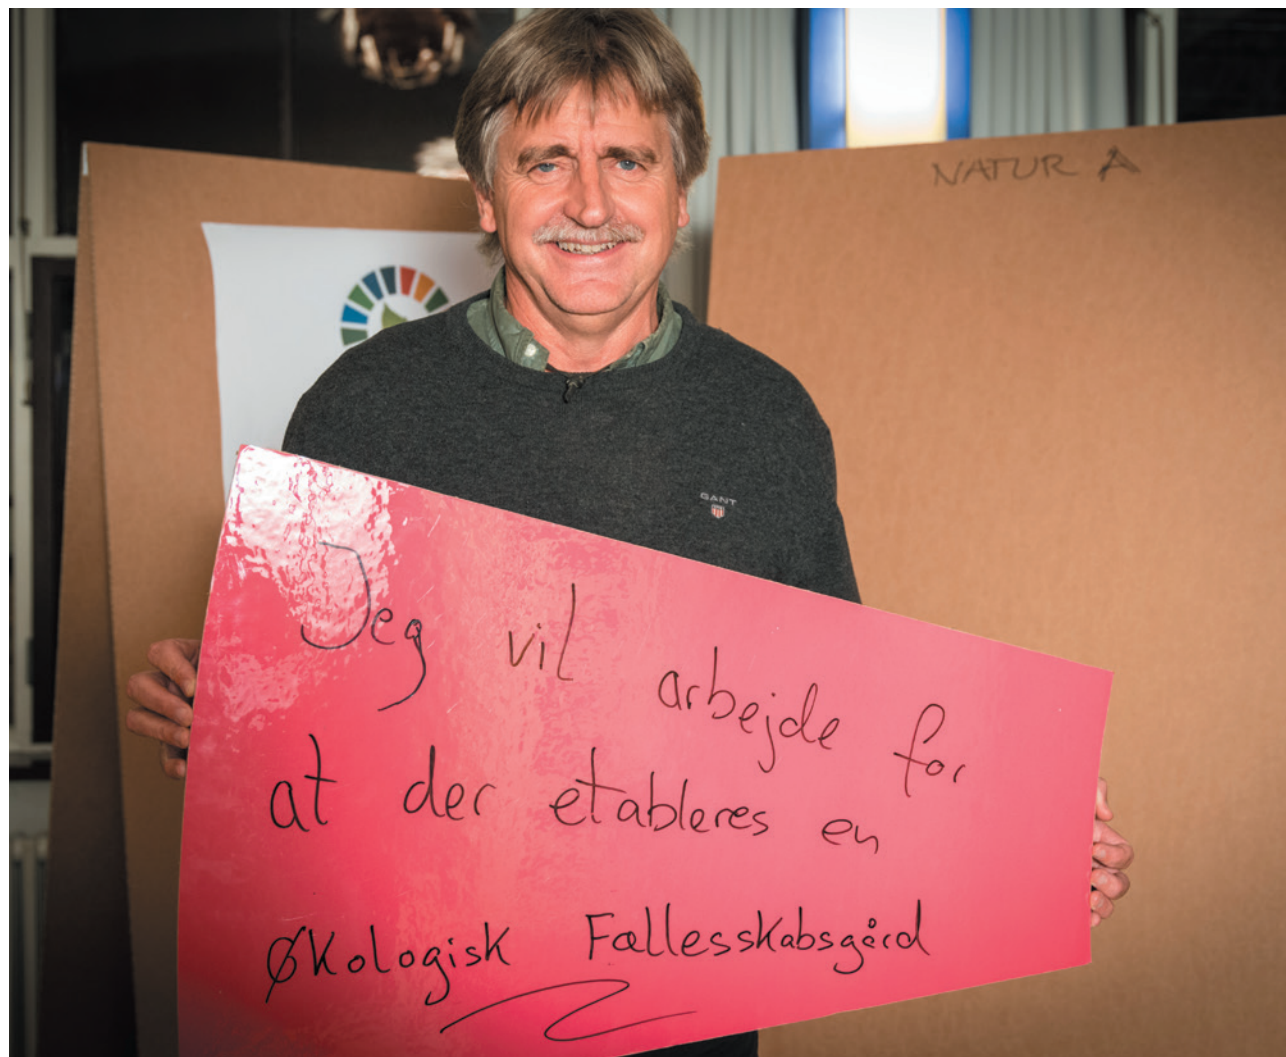 NATUR A
GANT
Jeg vil arbejde for
at der etableres en
Økologisk Fællesskabsgård